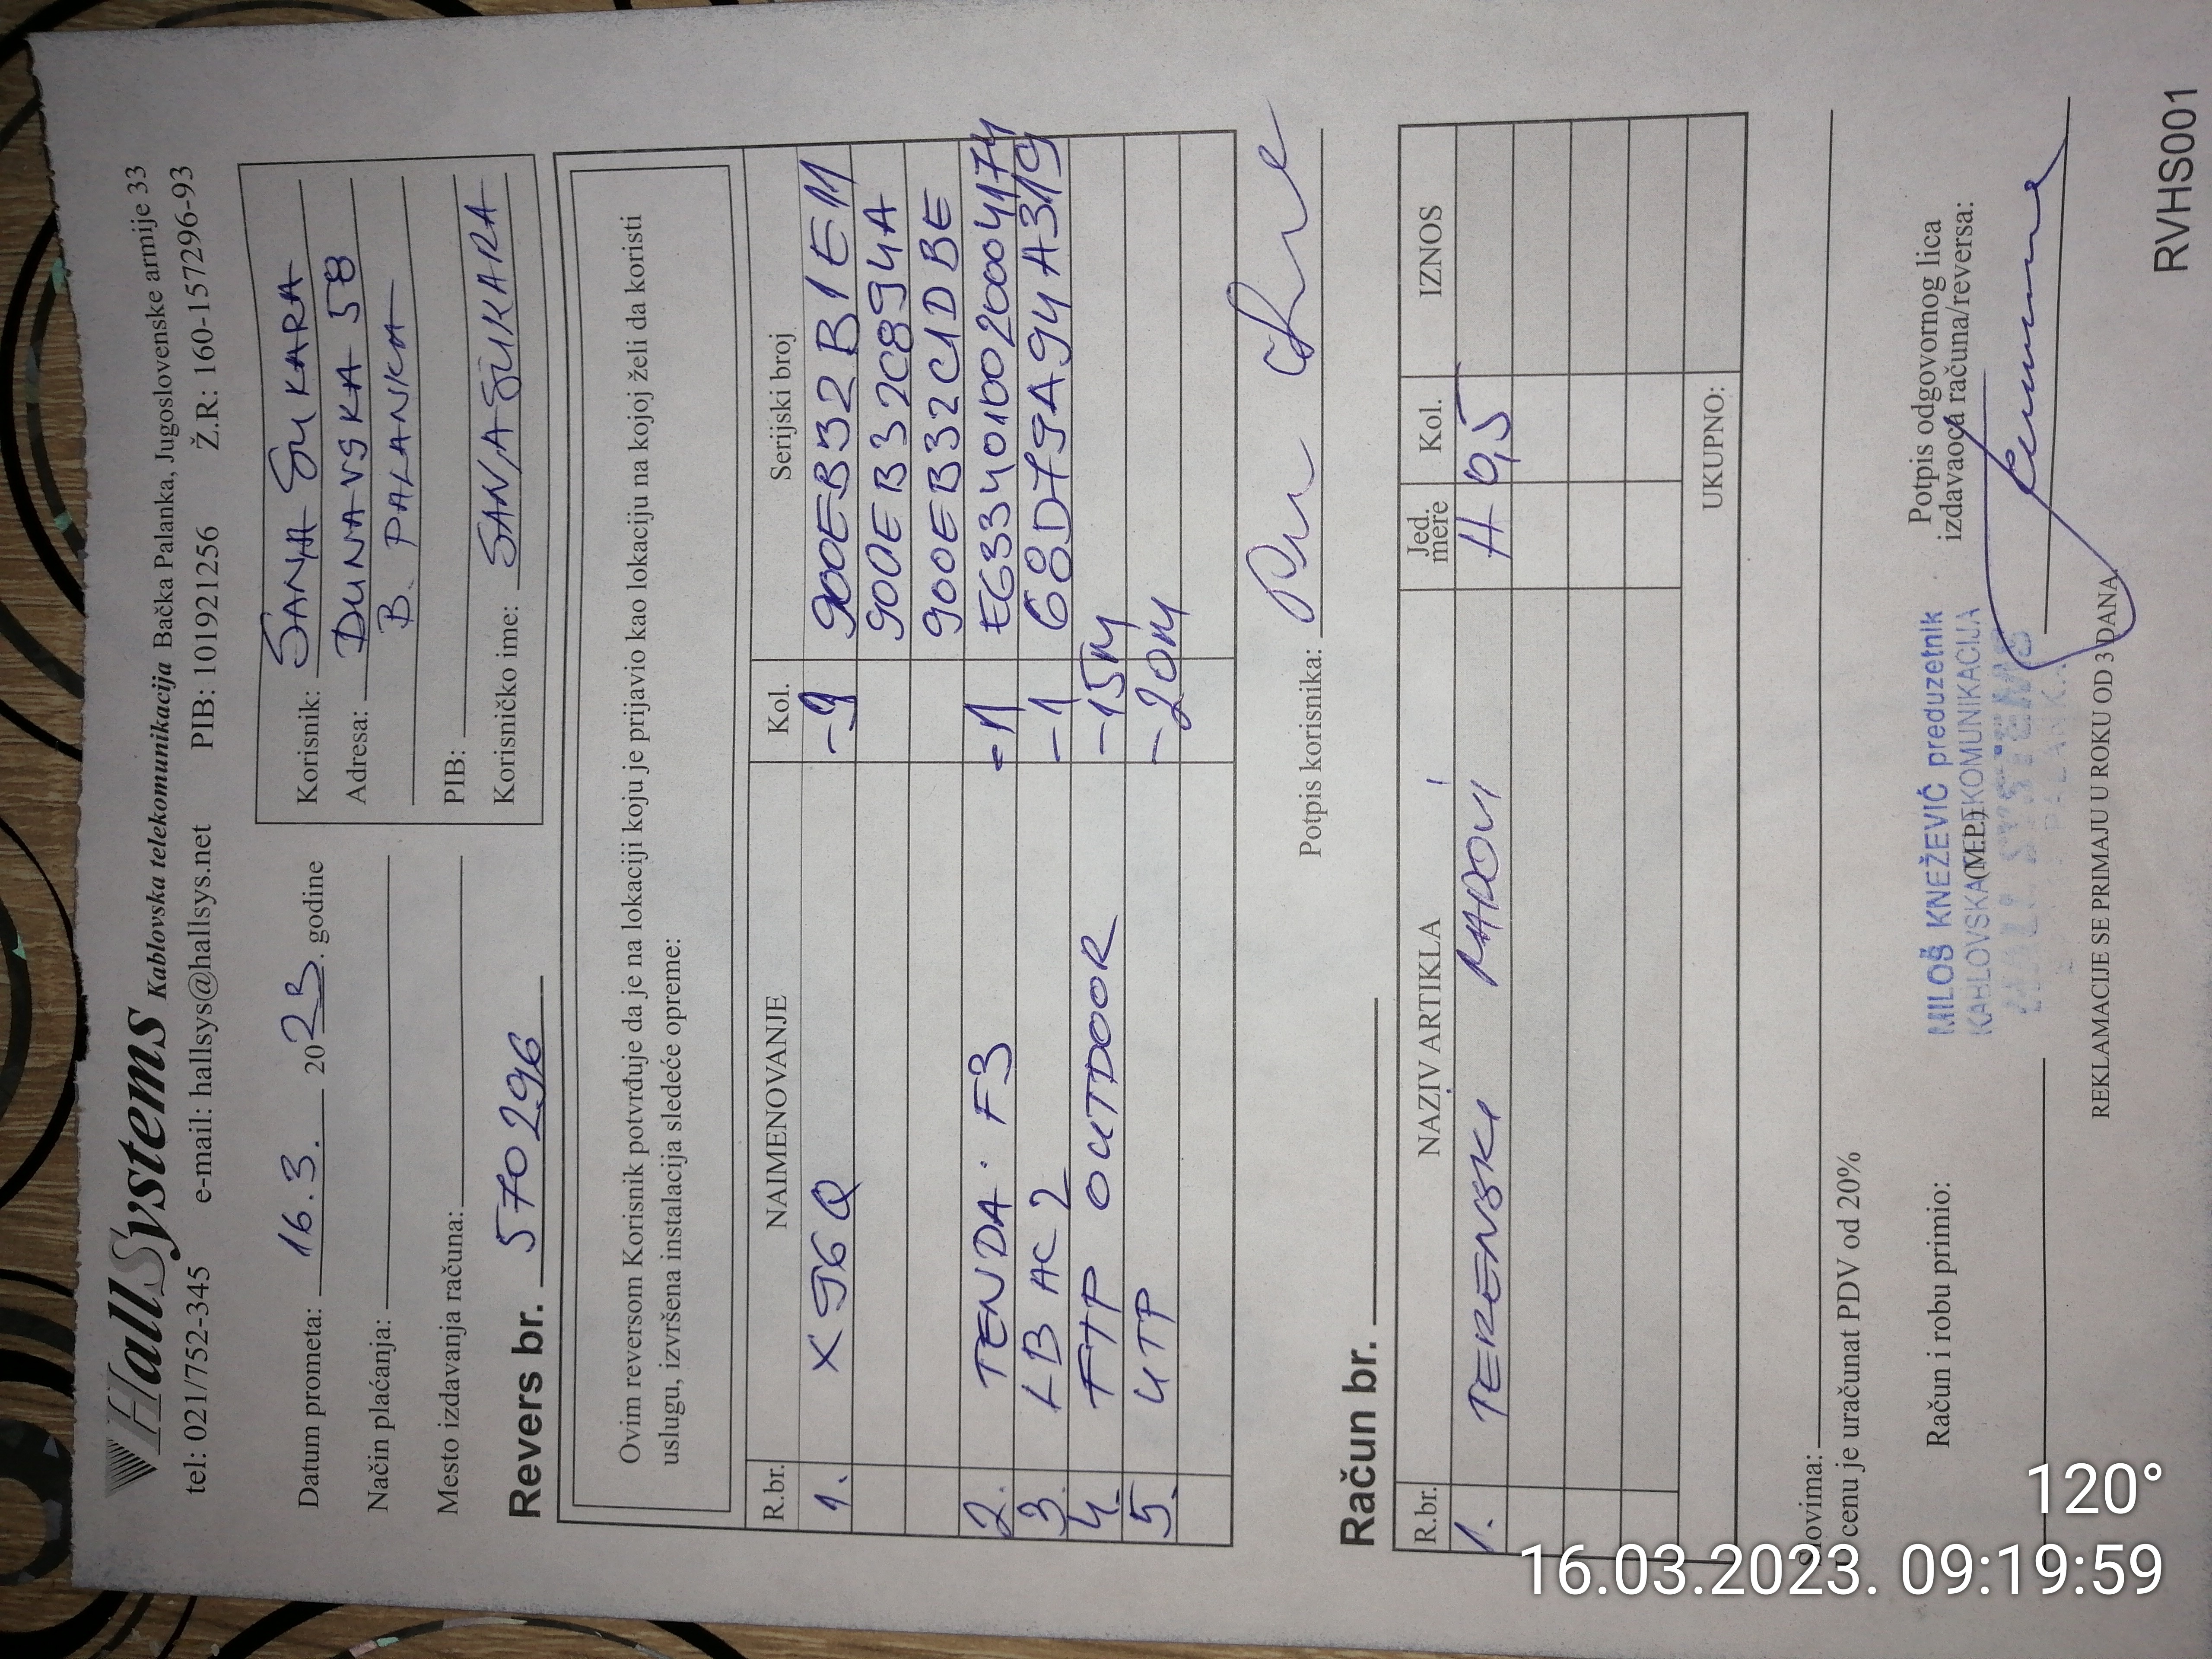 HallSystems Kablovska telekomunikacija Bačka Palanka, Jugoslovenske armije 33
tel: 021/752-345 e-mail: hallsys@hallsys.net PIB: 101921256 Ž.R: 160-157296-93
Datum prometa: 16.3. 2023. godine
Način plaćanja:
Mesto izdavanja računa:
Korisnik: SANA ŠUKARA
Adresa: DUNAVSKA 58
B. PALANKA
PIB:
Korisničko ime: SANASUKARA
Revers br. 570296
Ovim reversom Korisnik potvrđuje da je na lokaciji koju je prijavio kao lokaciju na kojoj želi da koristi
uslugu, izvršena instalacija sledeće opreme:
R.br. NAIMENOVANJE Kol. Serijski broj
1. X96Q -9 900EB32B1E11
900EB32C894A
900EB32C1DBE
2. TENDA F3 -1 E6334010020004174
3. LB AC 2 -1 68D79A94A319
4. FTP OUTDOOR -15M
5. UTP -20M
Potpis korisnika:
Račun br.
R.br. NAZIV ARTIKLA Jed. mere Kol. IZNOS
1. TERENSKI RADOVI H 0,5
UKUPNO:
Slovima:
U cenu je uračunat PDV od 20%
Račun i robu primio:
(M.P.)
MILOŠ KNEŽEVIĆ preduzetnik
KABLOVSKA TELEKOMUNIKACIJA
HALL SYSTEMS
Potpis odgovornog lica
izdavaoca računa/reversa:
REKLAMACIJE SE PRIMAJU U ROKU OD 3 DANA.
RVHS001
120°
16.03.2023. 09:19:59